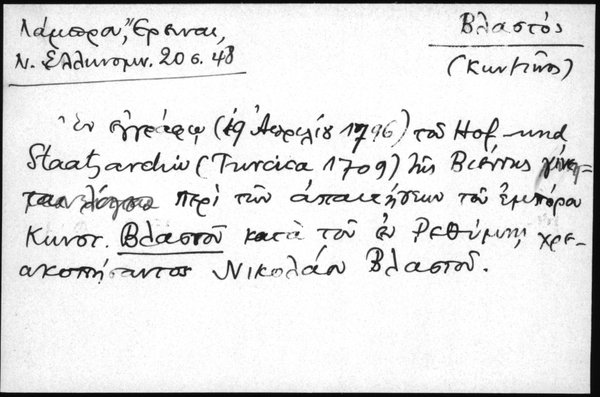 Λάμπρου, Ἔρευναι,
Ν. Ἑλληνομν. 20 σ. 48
Βλαστὸς
(Κωντῖνος)
Ἐν ἐγγράφῳ (19 Ἀπριλίου 1796) τοῦ Hof- und
Staatsarchiv (Turcica 1709) τῆς Βιέννης γίνε-
ται λόγος περὶ τῶν ἀπαιτήσεων τοῦ ἐμπόρου
Κωνστ. Βλαστοῦ κατὰ τοῦ ἐν Ρεθύμνῃ χρε-
ακοπήσαντος Νικολάου Βλαστοῦ.